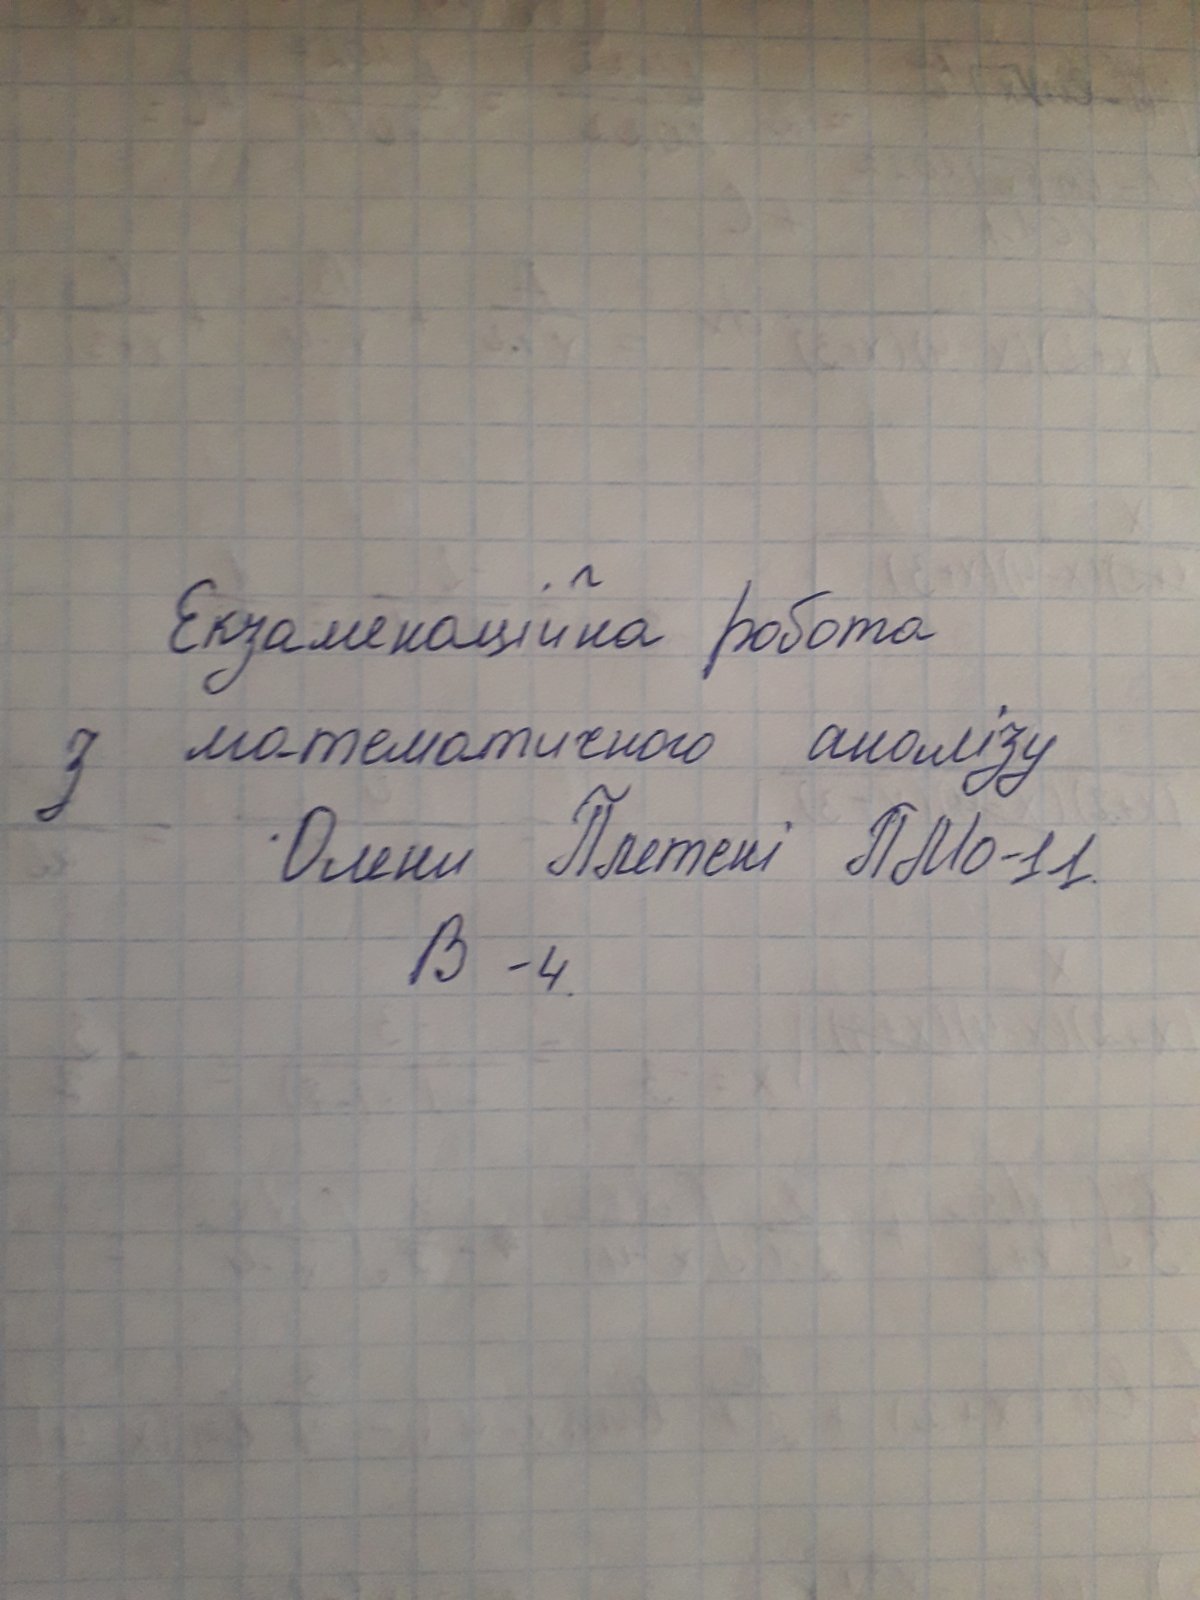 Екзаменаційна робота
з математичного аналізу
Олени Плетені ПМО-11.
В -4.